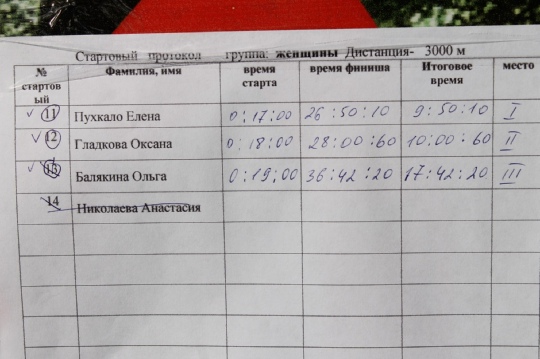 Стартовый протокол группа: женщины Дистанция- 3000 м
№ стартов ый Фамилия, имя время старта время финиша Итоговое время место
11 Пухкало Елена 0:17:00 26:50:10 9:50:10 I
12 Гладкова Оксана 0:18:00 28:00:60 10:00:60 II
13 Балякина Ольга 0:19:00 36:42:20 17:42:20 III
14 Николаева Анастасия